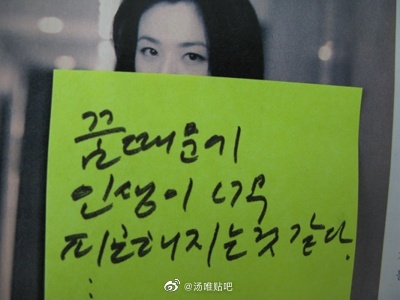 꿈때문에
인생이 너무
피로해지는것 같다.
:
@汤唯贴吧